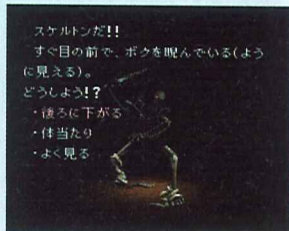 スケルトンだ!!
すぐ目の前で、ボクを睨んでいる(よう
に見える)。
どうしよう!?
・後ろに下がる
・体当たり
・よく見る